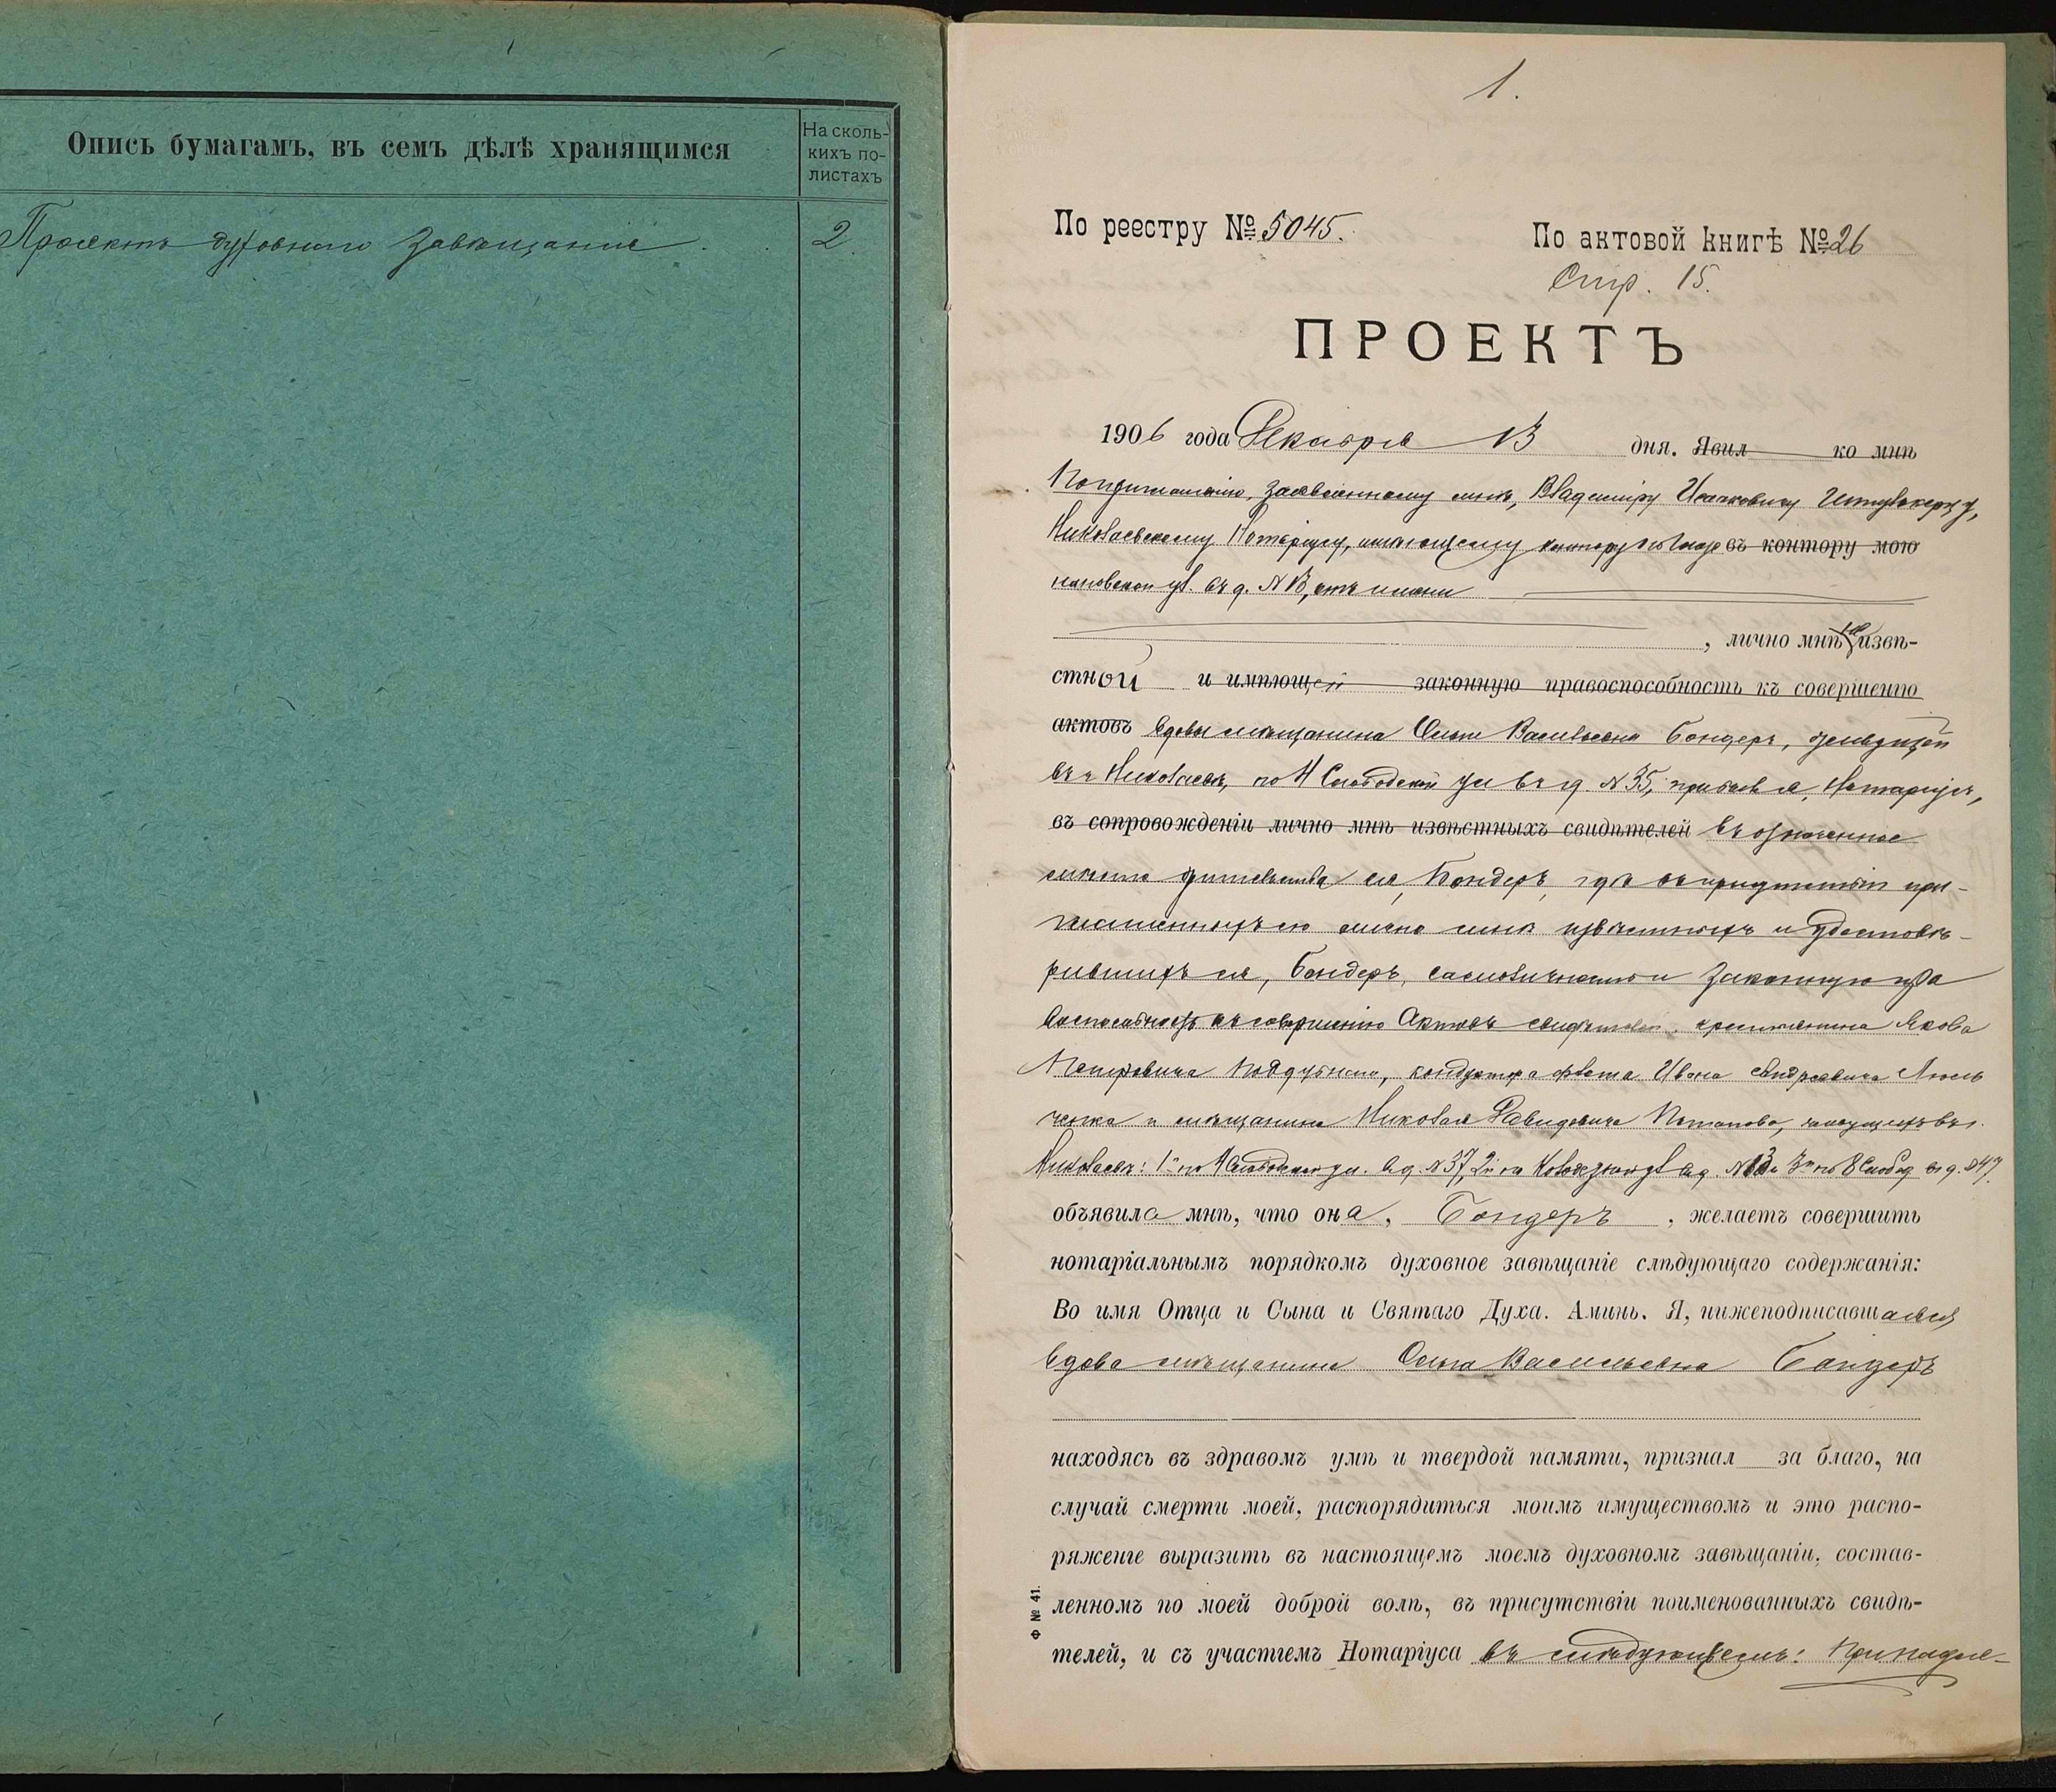 Опись бумагамъ, въ семъ дѣлѣ хранящимся
На сколь-
кихъ по-
листахъ
Проектъ духовнаго завѣщанія. 2.
1.
По реестру № 5045.
По актовой книгѣ № 26
Стр. 15.
ПРОЕКТЪ
1906 года Декабря 13 дня. Явил ко мнѣ
По приглашенію, заявленному мнѣ, Владиміру Исааковичу
Николаевскому Нотаріусу, имѣющему контору въ контору мою
ул. въ д. № 13, отъ имени
, лично мнѣ не извѣ-
стной и имѣющей законную правоспособность къ совершенію
актовъ вдовы мѣщанина Ольги Васильевны Бондеръ, живущей
въ г. Николаевѣ, по 4 Слободской ул. въ д. № 35, прибылъ я, Нотаріусъ,
въ сопровожденіи лично мнѣ извѣстныхъ свидѣтелей въ означенное
мѣсто жительства ея, Бондеръ, гдѣ въ присутствіи при-
глашенныхъ ею лично мнѣ извѣстныхъ и удостовѣ-
рившихъ ея, Бондеръ, самоличность и законную пра
воспособность къ совершенію актовъ свидѣтелей: крестьянина Якова
Петровича Поддубнаго, кондуктора флота Ивана Андреевича Люль
ченка и мѣщанина Николая Давидовича Потапова, живущихъ въ г.
Николаевѣ: 1й по 4 Слободской ул. въ д. № 37, 2й по въ д. № 13 и 3й по 8 Слобод. въ д. № 47.
объявила мнѣ, что она, Бондеръ, желаетъ совершить
нотаріальнымъ порядкомъ духовное завѣщаніе слѣдующаго содержанія:
Во имя Отца и Сына и Святаго Духа. Аминь. Я, нижеподписавшаяся
вдова мѣщанина Ольга Васильевна Бондеръ
находясь въ здравомъ умѣ и твердой памяти, признал за благо, на
случай смерти моей, распорядиться моимъ имуществомъ и это распо-
ряженіе выразить въ настоящемъ моемъ духовномъ завѣщаніи, состав-
ленномъ по моей доброй волѣ, въ присутствіи поименованныхъ свидѣ-
телей, и съ участіемъ Нотаріуса въ слѣдующемъ: Принадле-
Ф № 41.